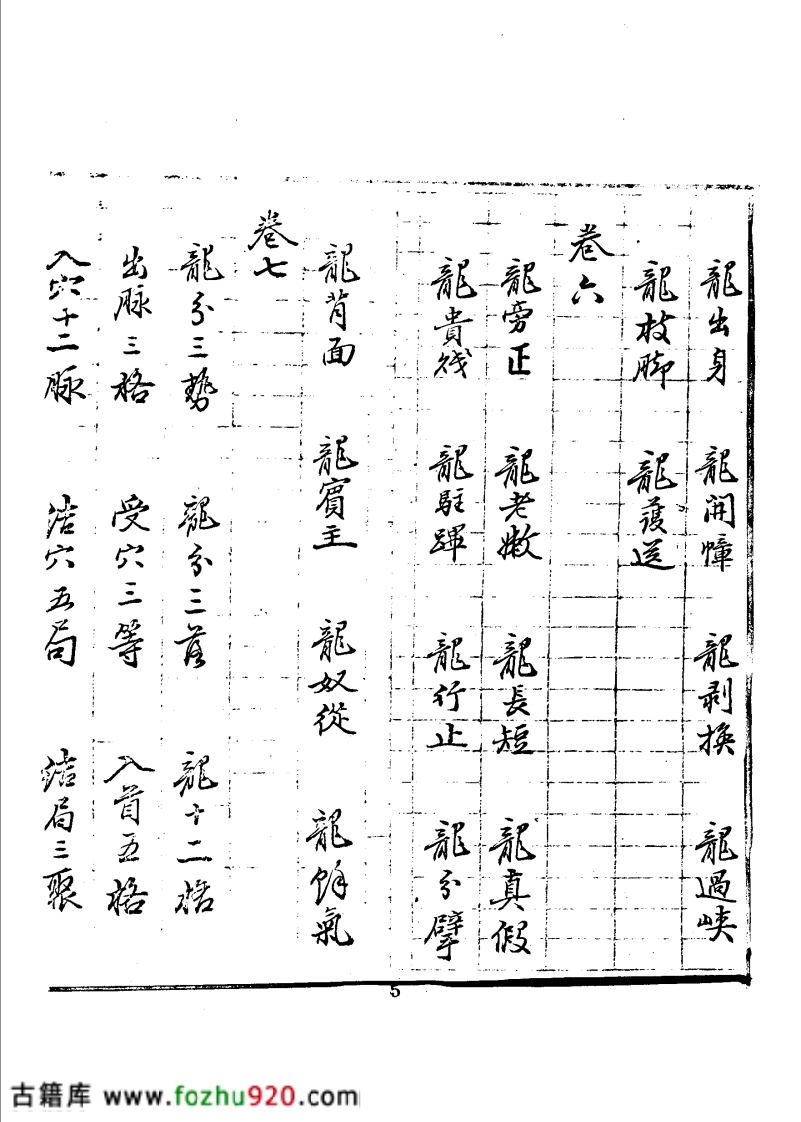 龍出身 龍開幛 龍剥換 龍過峽
龍枝脚 龍護送
卷六
龍旁正 龍老嫩 龍長短 龍真假
龍貴賤 龍駐蹕 龍行止 龍分擘
龍背面 龍賓主 龍奴從 龍餘氣
卷七
龍分三勢 龍分三落 龍十二格
出脉三格 受穴三等 入首五格
入穴十二脉 結穴五局 結局三聚
5
古籍库 www.fozhu920.com